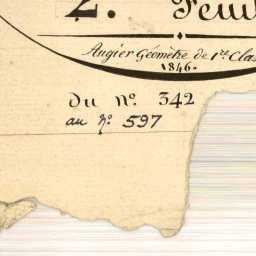 2. Feuil
Augier Géomètre de 1re Clas
1846.
du No. 342
au No. 597